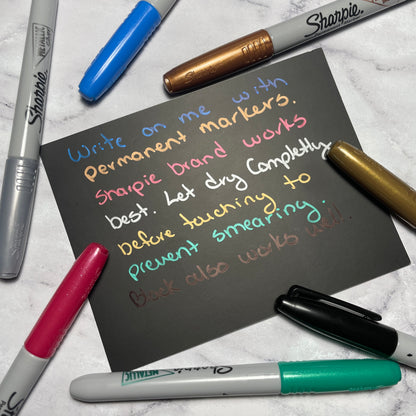 Write on me with
permanent markers.
Sharpie brand works
best. Let dry Completly
before touching to
prevent smearing.
Black also works well.
Sharpie
METALLIC
Sharpie
Sharpie
METALLIC